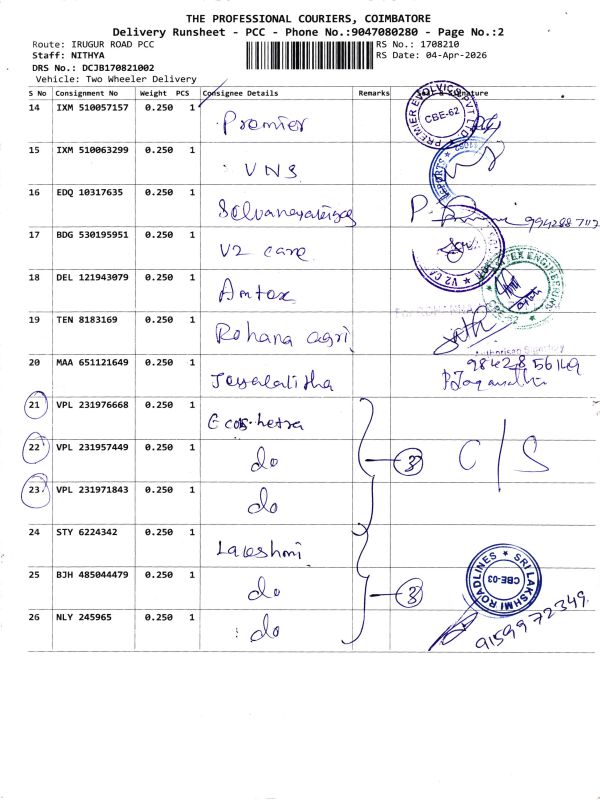 THE PROFESSIONAL COURIERS, COIMBATORE
Delivery Runsheet - PCC - Phone No.:9047080280 - Page No.:2
Route: IRUGUR ROAD PCC
RS No.: 1708210
Staff: NITHYA
RS Date: 04-Apr-2026
DRS No.: DCJB170821002
Vehicle: Two Wheeler Delivery
S No Consignment No Weight PCS Consignee Details Remarks Signature
14 IXM 510057157 0.250 1 Premier
CBE-62
15 IXM 510063299 0.250 1 VNS
16 EDQ 10317635 0.250 1
17 BDG 530195951 0.250 1 V2 care
18 DEL 121943079 0.250 1 Amtex
19 TEN 8183169 0.250 1 Rohana agri
20 MAA 651121649 0.250 1 Jeyalalitha
21 VPL 231976668 0.250 1
22 VPL 231957449 0.250 1 do 3 C/S
23 VPL 231971843 0.250 1 do
24 STY 6224342 0.250 1 Lakshmi
SRI LAKSHMI ROADLINES
CBE-03
25 BJH 485044479 0.250 1 do 3
26 NLY 245965 0.250 1 do 9159972349